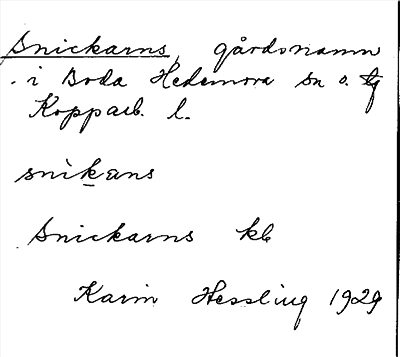 Snickarns, gårdsnamn
i Boda Hedemora sn o. tg
Kopparb. l.
snikans
Snickarns kb
Karin Hessling 1929